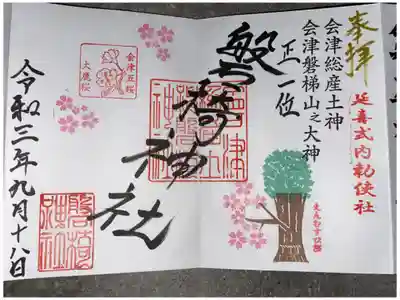 奉拝
延喜式内勅使社
会津総産土神
会津磐梯山之大神
正一位
えんむすび桜
磐椅神社
会津五桜
大鹿桜
磐椅
神社
令和三年九月十八日